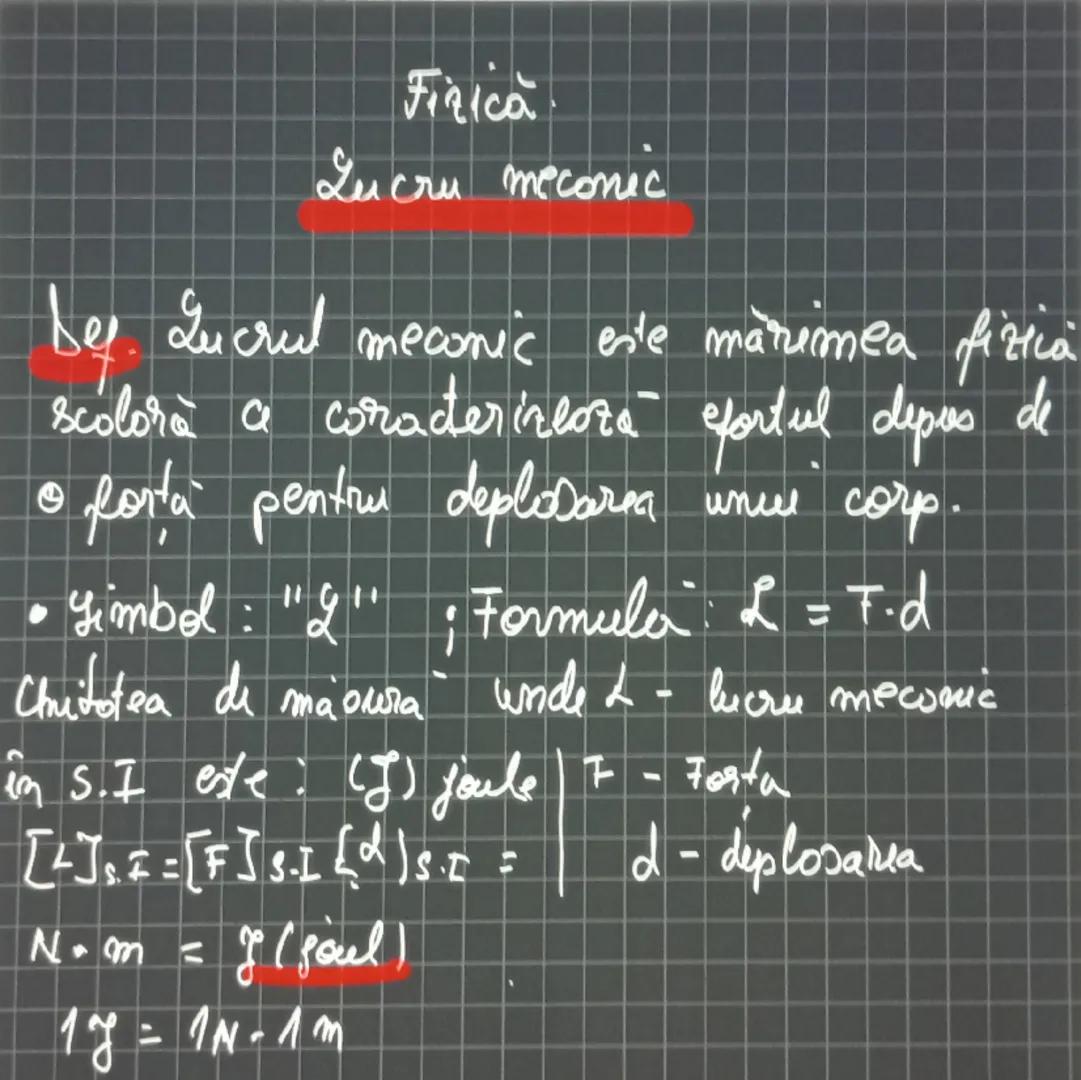 Fizică.
Lucru mecanic
Def. Lucrul mecanic este mărimea fizică
scalară a caracterizează efortul depus de
o forță pentru deplasarea unui corp.
• Simbol : "L" ; Formulă : L = F·d
Unitatea de măsură unde L - lucru mecanic
în S.I este : (J) joule | F - Forța
[L]S.I = [F]S.I [d]S.I = | d - deplasarea
N·m = J (joul)
1J = 1N · 1m